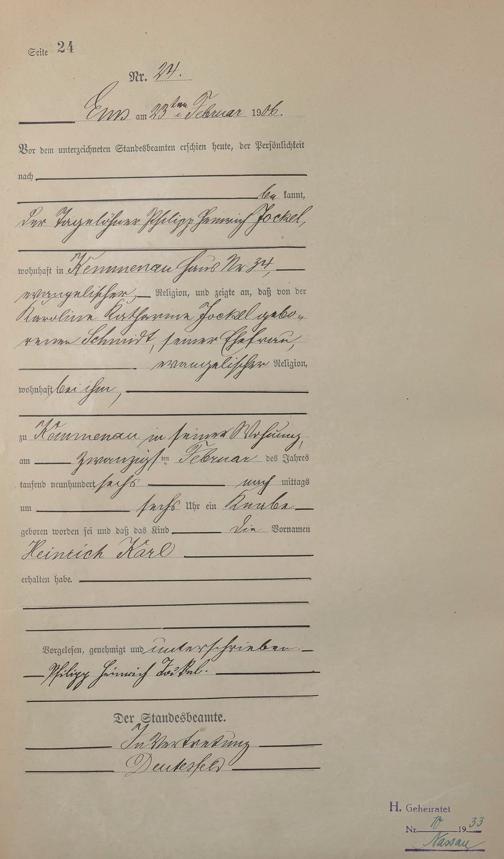 Seite 24
Nr. 24.
Ems am 23ten Februar 1906.
Vor dem unterzeichneten Standesbeamten erschien heute, der Persönlichkeit
nach
be kannt,
der Tagelöhner Philipp Heinrich Jockel,
wohnhaft in Kemmenau Haus Nr. 34,
evangelischer Religion, und zeigte an, daß von der
Karoline Katharine Jockel gebo-
renen Schmidt, seiner Ehefrau,
evangelischer Religion,
wohnhaft bei ihm,
zu Kemmenau in seiner Wohnung,
am zwanzigsten Februar des Jahres
tausend neunhundert sechs nach mittags
um sechs Uhr ein Knabe
geboren worden sei und daß das Kind die Vornamen
Heinrich Karl
erhalten habe.
Vorgelesen, genehmigt und unterschrieben
Philipp Heinrich Jockel.
Der Standesbeamte.
In Vertretung
H. Geheiratet
Nr. 1933
Nassau